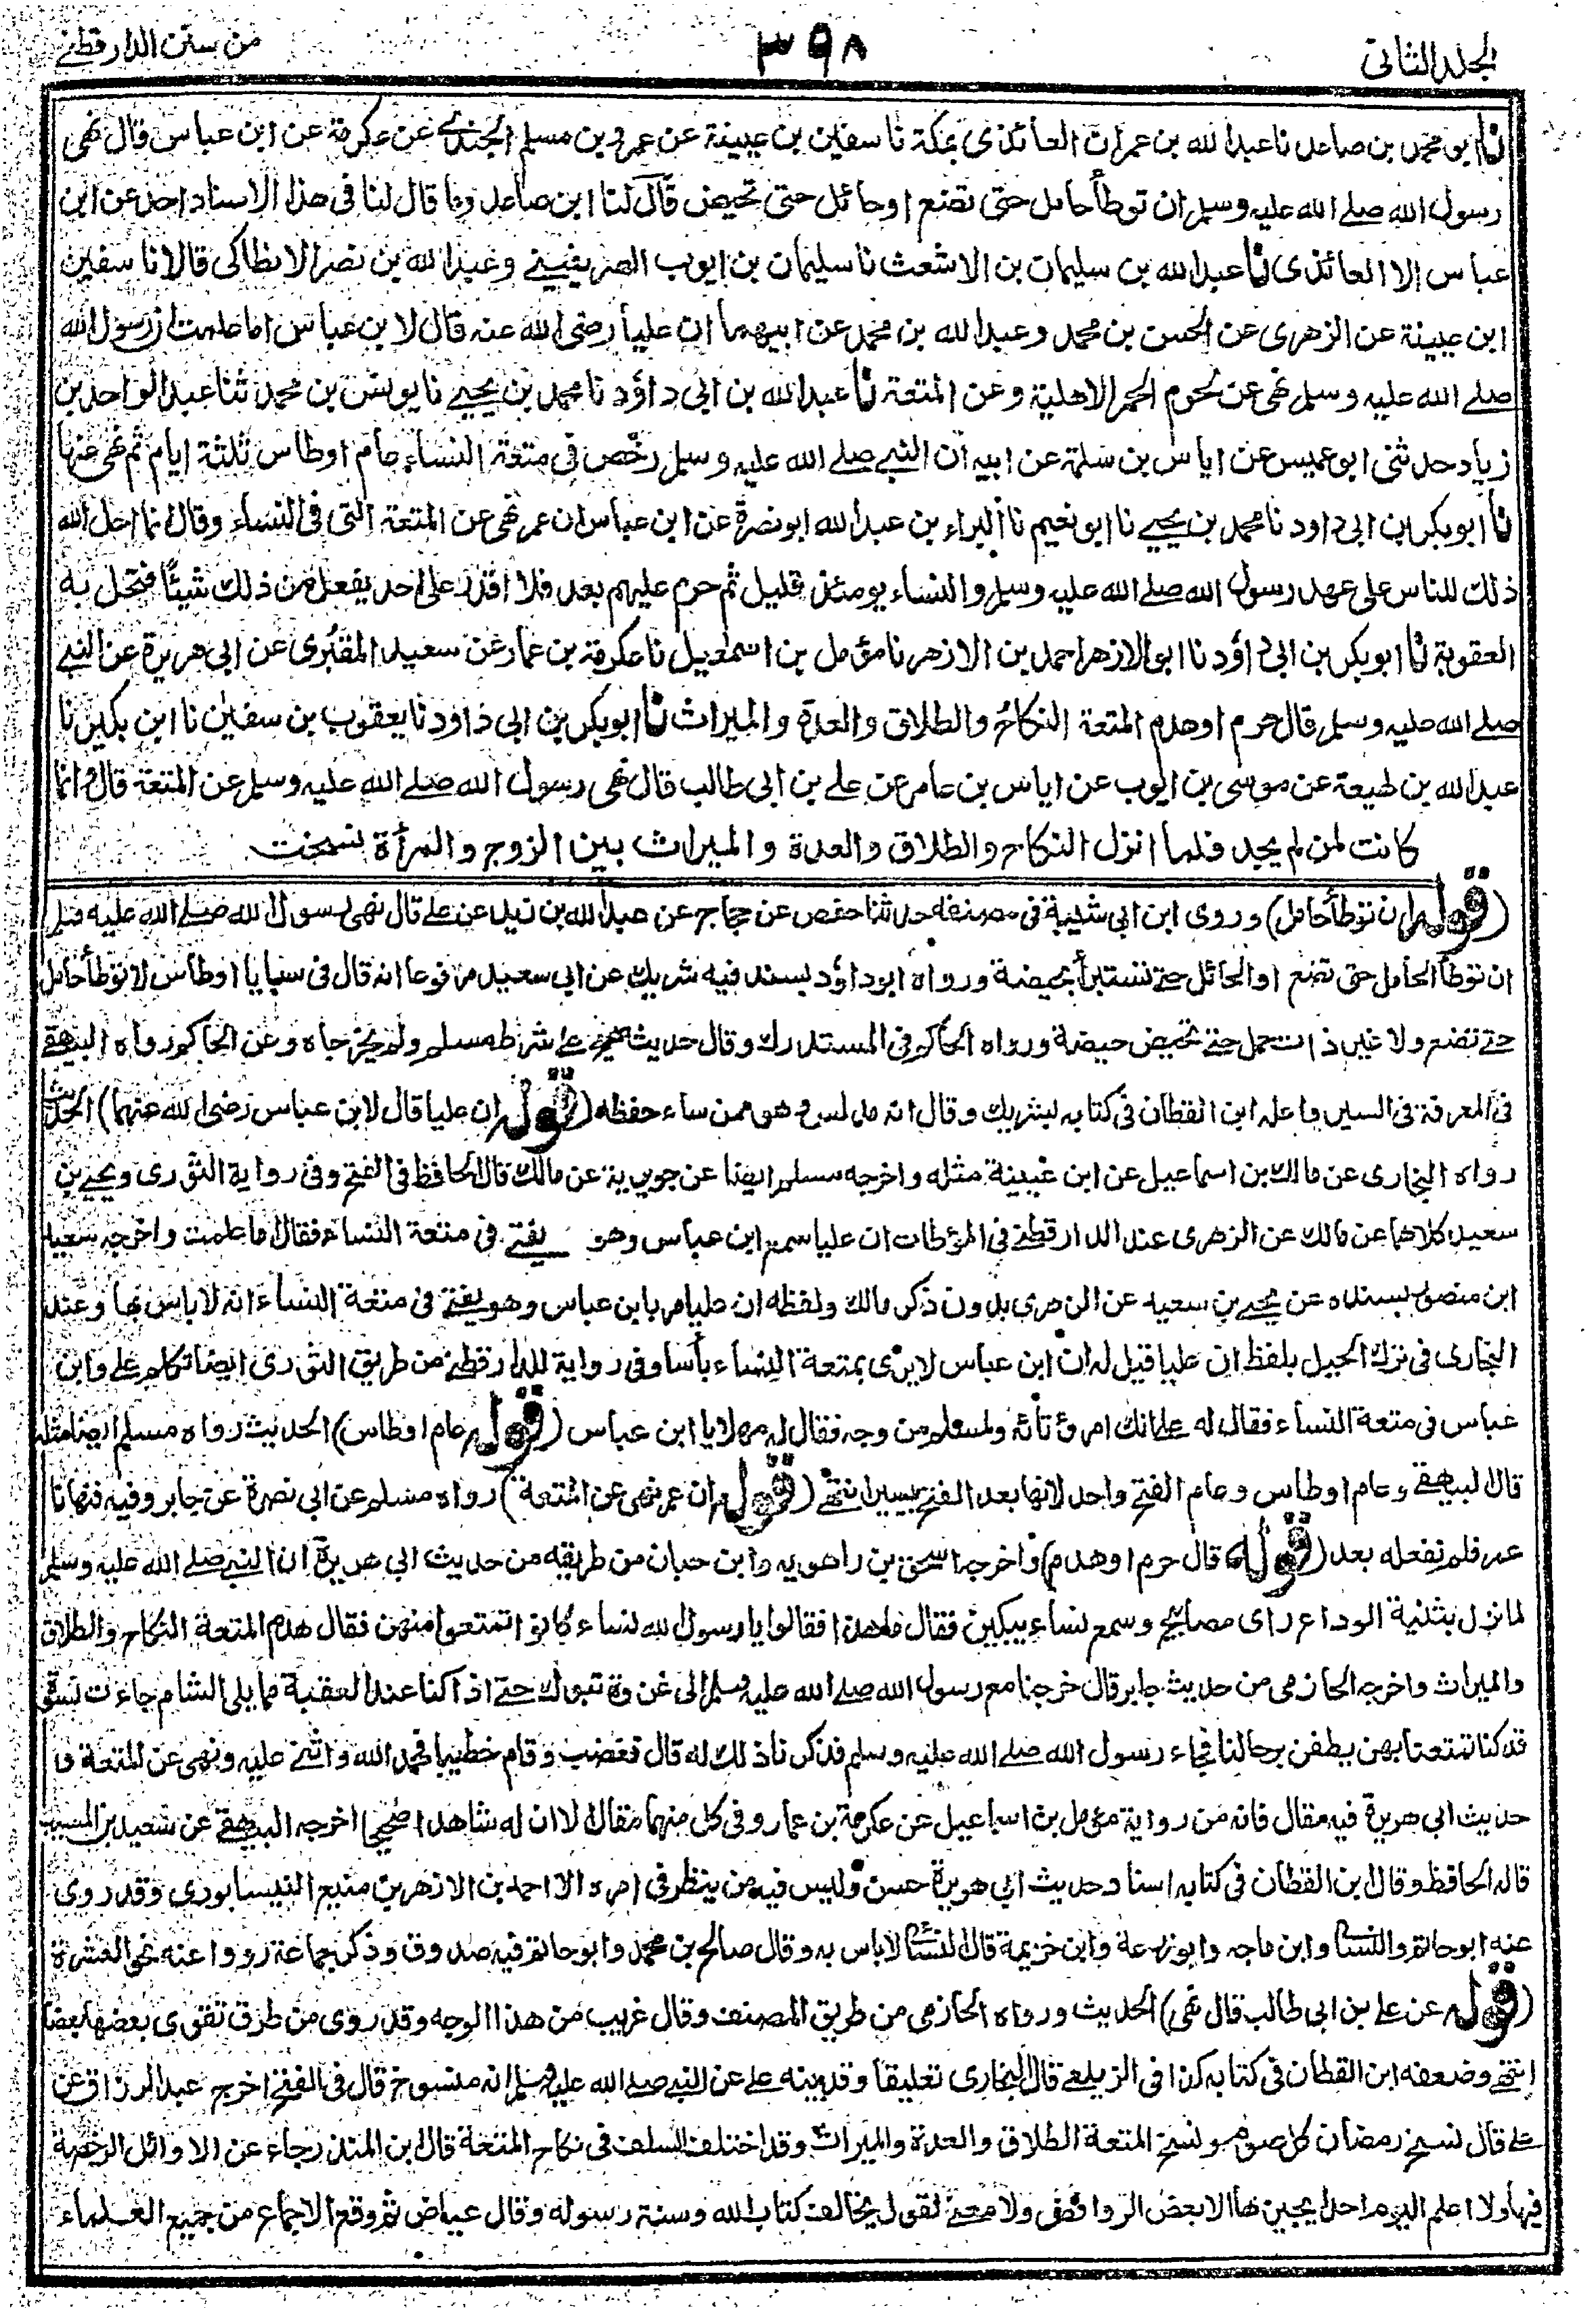 الجلد الثاني
٣٩٨
من سنن الدارقطني
نا ابو محمد بن صاعد نا عبد الله بن عمران العائذي بمكة نا سفين بن عيينة عن عمرو بن مسلم الجندي عن عكرمة عن ابن عباس قال نهى
رسول الله صلے الله عليه وسلم ان توطأ حامل حتى تضع او حائل حتى تحيض قال لنا ابن صاعد وما قال لنا في هذا الاسناد احد عن ابن
عباس الا العائذي نا عبد الله بن سليمان بن الاشعث نا سليمان بن ايوب الصريفيني وعبد الله بن نصر الانطاكي قالا نا سفين
ابن عيينة عن الزهري عن الحسن بن محمد وعبد الله بن محمد عن ابيهما ان عليا رضى الله عنه قال لابن عباس اما علمت ان رسول الله
صلے الله عليه وسلم نهى عن لحوم الحمر الاهلية وعن المتعة نا عبد الله بن ابي داؤد نا محمد بن يحيى نا يونس بن محمد ثنا عبد الواحد بن
زياد حدثني ابو عميس عن اياس بن سلمة عن ابيه ان النبي صلے الله عليه وسلم رخّص في متعة النساء عام اوطاس ثلثة ايام ثم نهى عنها
نا ابو بكر بن ابي داود نا محمد بن يحيى نا ابو نعيم نا البراء بن عبد الله ابو نصرة عن ابن عباس ان عمر نهى عن المتعة التي في النساء وقال انما احل الله
ذلك للناس على عهد رسول الله صلے الله عليه وسلم والنساء يومئذ قليل ثم حرم عليهم بعد فلا اقدر على احد يفعل من ذلك شيئًا فتحل به
العقوبة نا ابو بكر بن ابي داؤد نا ابو الازهر احمد بن الازهر نا مؤمل بن اسمعيل نا عكرمة بن عمار عن سعيد المقبُري عن ابي هريرة عن النبي
صلے الله عليه وسلم قال حرم او هدم المتعة النكاحُ والطلاق والعدة والميراث نا ابو بكر بن ابي داود نا يعقوب بن سفين نا ابن بكير نا
عبد الله بن لهيعة عن موسى بن ايوب عن اياس بن عامر عن علے بن ابي طالب قال نهى رسول الله صلے الله عليه وسلم عن المتعة قال وانما
كانت لمن لم يجد فلما انزل النكاح والطلاق والعدة والميراث بين الزوج والمرأة نسخت
(قوله ان توطأ حامل) وروى ابن ابي شيبة في مصنفه حدثنا حفص عن حجاج عن عبد الله بن زيد عن علے قال نهى رسول الله صلے الله عليه وسلم
ان توطأ الحامل حتى تضع او الحائل حتے تستبرأ بحيضة ورواه ابو داؤد بسند فيه شريك عن ابي سعيد مرفوعا انه قال في سبايا اوطاس لا توطأ حامل
حتے تضع ولا غير ذات حمل حتے تحيض حيضة ورواه الحاكم في المستدرك وقال حديث صحيح علے شرط مسلم ولم يخرجاه وعن الحاكم رواه البيهقے
في المعرفة في السير واعله ابن القطان في كتابه بشريك وقال انه مدلس وهو ممن ساء حفظه (قوله ان عليا قال لابن عباس رضى الله عنهما) الحديث
رواه البخاري عن مالك بن اسماعيل عن ابن عيينة مثله واخرجه مسلم ايضا عن جويرية عن مالك قال الحافظ في الفتح وفي رواية الثوري ويحيى بن
سعيد كلاهما عن مالك عن الزهري عند الدارقطني في المؤطات ان عليا سمع ابن عباس وهو يفتے في متعة النساء فقال اما علمت واخرجه سعيد
ابن منصور بسنده عن يحيى بن سعيد عن الزهري بدون ذكر مالك ولفظه ان عليا مر بابن عباس وهو يفتے في متعة النساء انه لا باس بها وعند
البخاري في ترك الحيل بلفظ ان عليا قيل له ان ابن عباس لا يرى بمتعة النساء بأسا وفي رواية للدارقطني من طريق الثوري ايضا تكلم علے وابن
عباس في متعة النساء فقال له علے انك امرؤ تائه ولمسلم من وجه فقال له مهلا يا ابن عباس (قوله عام اوطاس) الحديث رواه مسلم ايضا مثله
قال البيهقے وعام اوطاس وعام الفتح واحد لانها بعد الفتح بيسير انتهے (قوله ان عمر نهى عن المتعة) رواه مسلم عن ابي نصرة عن جابر وفيه فنهانا
عمر فلم نفعله بعد (قوله قال حرم او هدم) واخرجه اسحق بن راهويه وابن حبان من طريقه من حديث ابي هريرة ان النبي صلے الله عليه وسلم
لما نزل بثنية الوداع راى مصابيح وسمع نساء يبكين فقال ما هذا فقالوا يا رسول الله نساء كانوا تمتعوا منهن فقال هدم المتعة النكاح والطلاق
والميراث واخرجه الحازمي من حديث جابر قال خرجنا مع رسول الله صلے الله عليه وسلم الى غزوة تبوك حتے اذا كنا عند العقبة مما يلي الشام جاءت نسوة
قد كنا تمتعنا بهن يطفن برحالنا فجاء رسول الله صلے الله عليه وسلم فذكرنا ذلك له قال فغضب وقام خطيبا فحمد الله واثنے عليه ونهى عن المتعة و
حديث ابي هريرة فيه مقال فانه من رواية مؤمل بن اسماعيل عن عكرمة بن عمار وفي كل منهما مقال الا ان له شاهدا صحيحا اخرجه البيهقے عن سعيد بن المسيب
قاله الحافظ وقال ابن القطان في كتابه اسناد حديث ابي هريرة حسن وليس فيه من ينظر في امره الا احمد بن الازهر بن منيع النيسابوري وقد روى
عنه ابو حاتم والنسائي وابن ماجه وابو زرعة وابن خزيمة قال النسائي لا باس به وقال صالح بن محمد وابو حاتم فيه صدوق وذكر جماعة رووا عنه نحو العشرة
(قوله عن علے بن ابي طالب قال نهى) الحديث ورواه الحازمي من طريق المصنف وقال غريب من هذا الوجه وقد روى من طرق تقوى بعضها بعضا
انتهے وضعفه ابن القطان في كتابه كذا في الزيلعے قال البخاري تعليقا وقد بينه علے عن النبي صلے الله عليه وسلم انه منسوخ قال في الفتح اخرج عبد الرزاق عن
علے قال نسخ رمضان كل صوم ونسخ المتعة الطلاق والعدة والميراث وقد اختلف السلف في نكاح المتعة قال ابن المنذر جاء عن الاوائل الرخصة
فيها ولا اعلم اليوم احدا يجيزها الا بعض الروافض ولا معنے لقول يخالف كتاب الله وسنة رسوله وقال عياض ثم وقع الاجماع من جميع العلماء